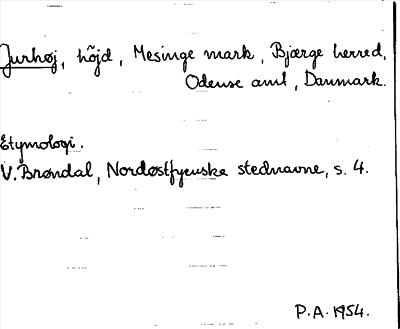 Jurhøj, höjd, Mesinge mark, Bjærge herred,
Odense amt, Danmark.
Etymologi.
V. Brøndal, Nordøstfyenske stednavne, s. 4.
P.A. 1954.